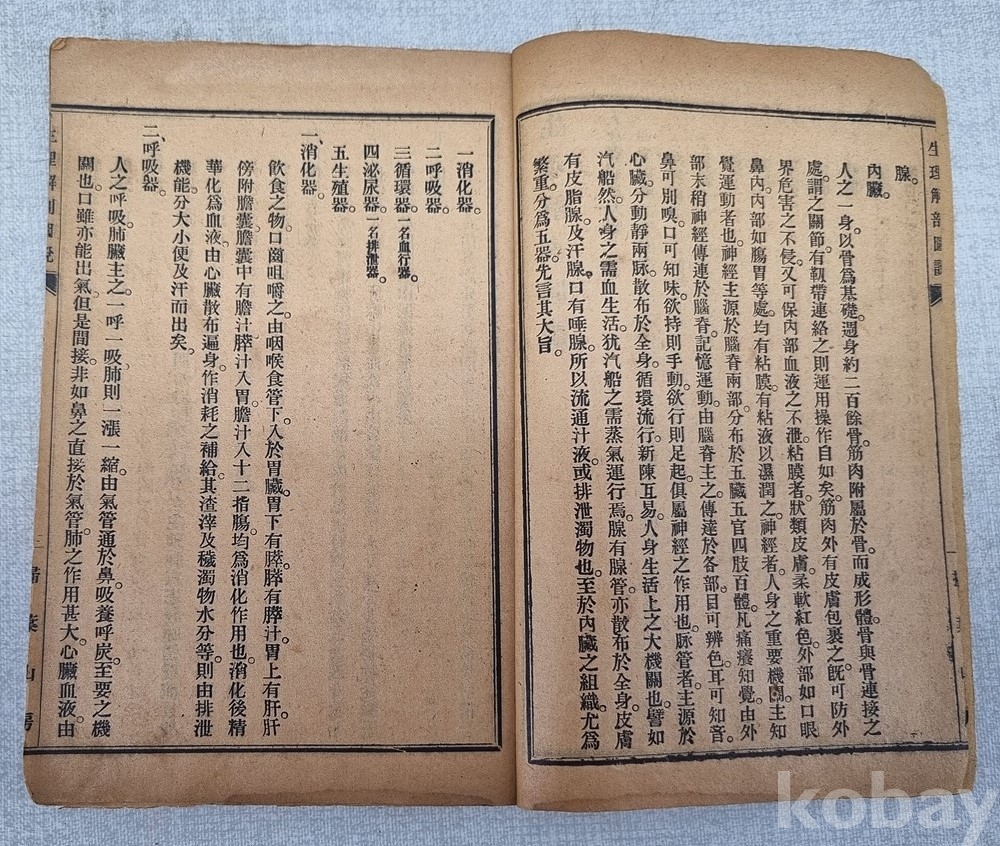 生理解剖圖說
腺。
內臟。
人之一身。以骨爲基礎。週身約二百餘骨。筋肉附屬於骨。而成形體。骨與骨連接之
處。謂之關節。有韌帶連絡之。則運用操作自如矣。筋肉外有皮膚包裹之。旣可防外
界危害之不侵。又可保內部血液之不泄。粘膜者。狀類皮膚。柔軟紅色。外部如口眼
鼻內。內部如腸胃等處。均有粘膜。有粘液以濕潤之。神經者。人身之重要機關。主知
覺運動者也。神經主源於腦脊兩部。分布於五臟五官四肢百體。凡痛癢知覺。由外
部末稍神經傳連於腦脊。記憶運動。由腦脊主之。傳達於各部。目可辨色。耳可知音。
鼻可別嗅。口可知味。欲持則手動。欲行則足起。俱屬神經之作用也。脉管者。主源於
心臟。分動靜兩脉。散布於全身。循環流行。新陳互易。人身生活上之大機關也。譬如
汽船然。人身之需血生活。犹汽船之需蒸氣運行焉。腺有腺管。亦散布於全身。皮膚
有皮脂腺。及汗腺。口有唾腺。所以流通汁液。或排泄濁物也。至於內臟之組織。尤爲
繁重。分爲五器。先言其大旨。
一消化器。
二呼吸器。
三循環器。一名血行器。
四泌尿器。一名排泄器。
五生殖器。
一、消化器。
飲食之物。口齒咀嚼之。由咽喉食管下。入於胃臟。胃下有膵。膵有膵汁。胃上有肝。肝
傍附膽囊。膽囊中有膽汁。膵汁入胃。膽汁入十二指腸。均爲消化作用也。消化後。精
華化爲血液。由心臟散布遍身。作消耗之補給。其渣滓及穢濁物水分等。則由排泄
機能。分大小便及汗而出矣。
二、呼吸器。
人之呼吸。肺臟主之。一呼一吸。肺則一漲一縮。由氣管通於鼻。吸養呼炭。至要之機
關也。口雖亦能出氣。但是間接。非如鼻之直接於氣管。肺之作用甚大。心臟血液。由
生理解剖圖說
二
掃葉山房
kobay